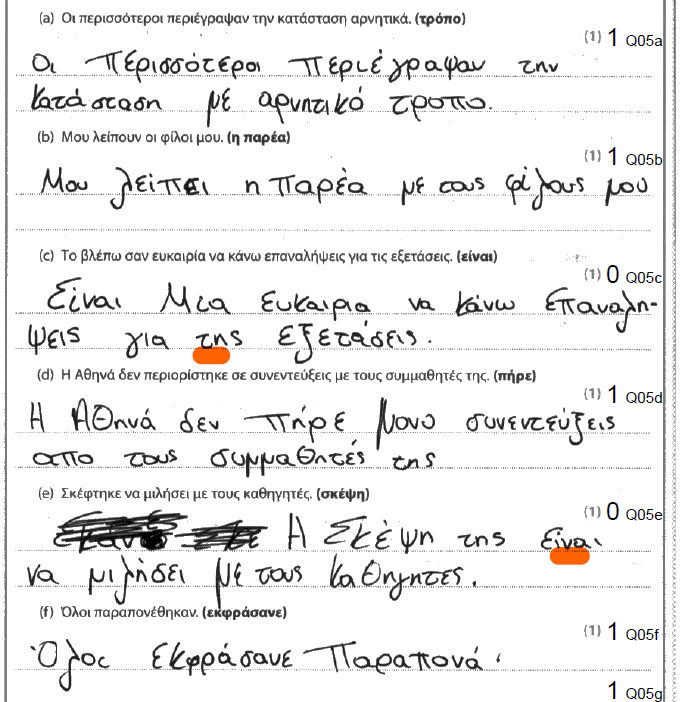 (a) Οι περισσότεροι περιέγραψαν την κατάσταση αρνητικά. (τρόπο)
(1) 1 Q05a
Οι Περισσότεροι Περιέγραψαν την
κατάσταση με αρνητικό τροπο.
(b) Μου λείπουν οι φίλοι μου. (η παρέα)
(1) 1 Q05b
Μου λείπει η Παρέα με τους φίλους μου
(c) Το βλέπω σαν ευκαιρία να κάνω επαναλήψεις για τις εξετάσεις. (είναι)
(1) 0 Q05c
Είναι Μια ευκαιρια να κάνω Επαναλη-
ψεις για της εξετάσεις.
(d) Η Αθηνά δεν περιορίστηκε σε συνεντεύξεις με τους συμμαθητές της. (πήρε)
(1) 1 Q05d
Η ΑΘηνά δεν Πήρε Μονο συνεντεύξεις
απο τους συμμαθητές της
(e) Σκέφτηκε να μιλήσει με τους καθηγητές. (σκέψη)
(1) 0 Q05e
Η Σκέψη της είναι
να μιλήσει με τους καθηγητες.
(f) Όλοι παραπονέθηκαν. (εκφράσανε)
(1) 1 Q05f
Όλος εκφράσανε Παραπονά.
1 Q05g